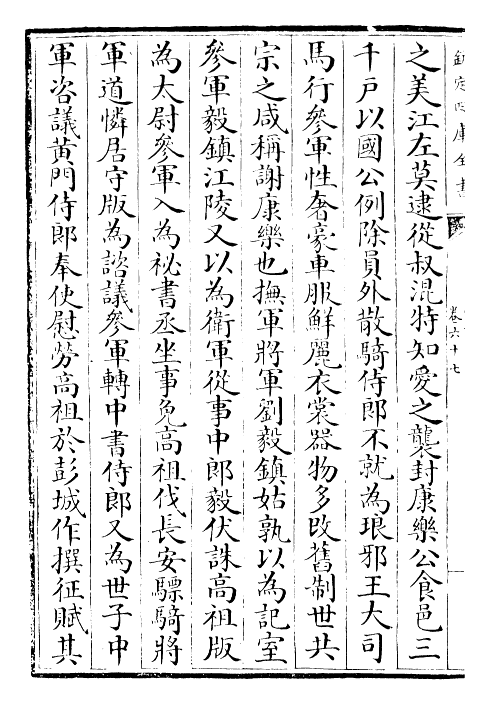 欽定四庫全書
卷六十七
之美江左莫逮從叔混特知愛之襲封康樂公食邑三
千戶以國公例除員外散騎侍郎不就為琅邪王大司
馬行參軍性奢豪車服鮮麗衣裳器物多改舊制世共
宗之咸稱謝康樂也撫軍將軍劉毅鎮姑孰以為記室
參軍毅鎮江陵又以為衛軍從事中郎毅伏誅高祖版
為太尉參軍入為祕書丞坐事免高祖伐長安驃騎將
軍道憐居守版為諮議參軍轉中書侍郎又為世子中
軍咨議黃門侍郎奉使慰勞高祖於彭城作撰征賦其